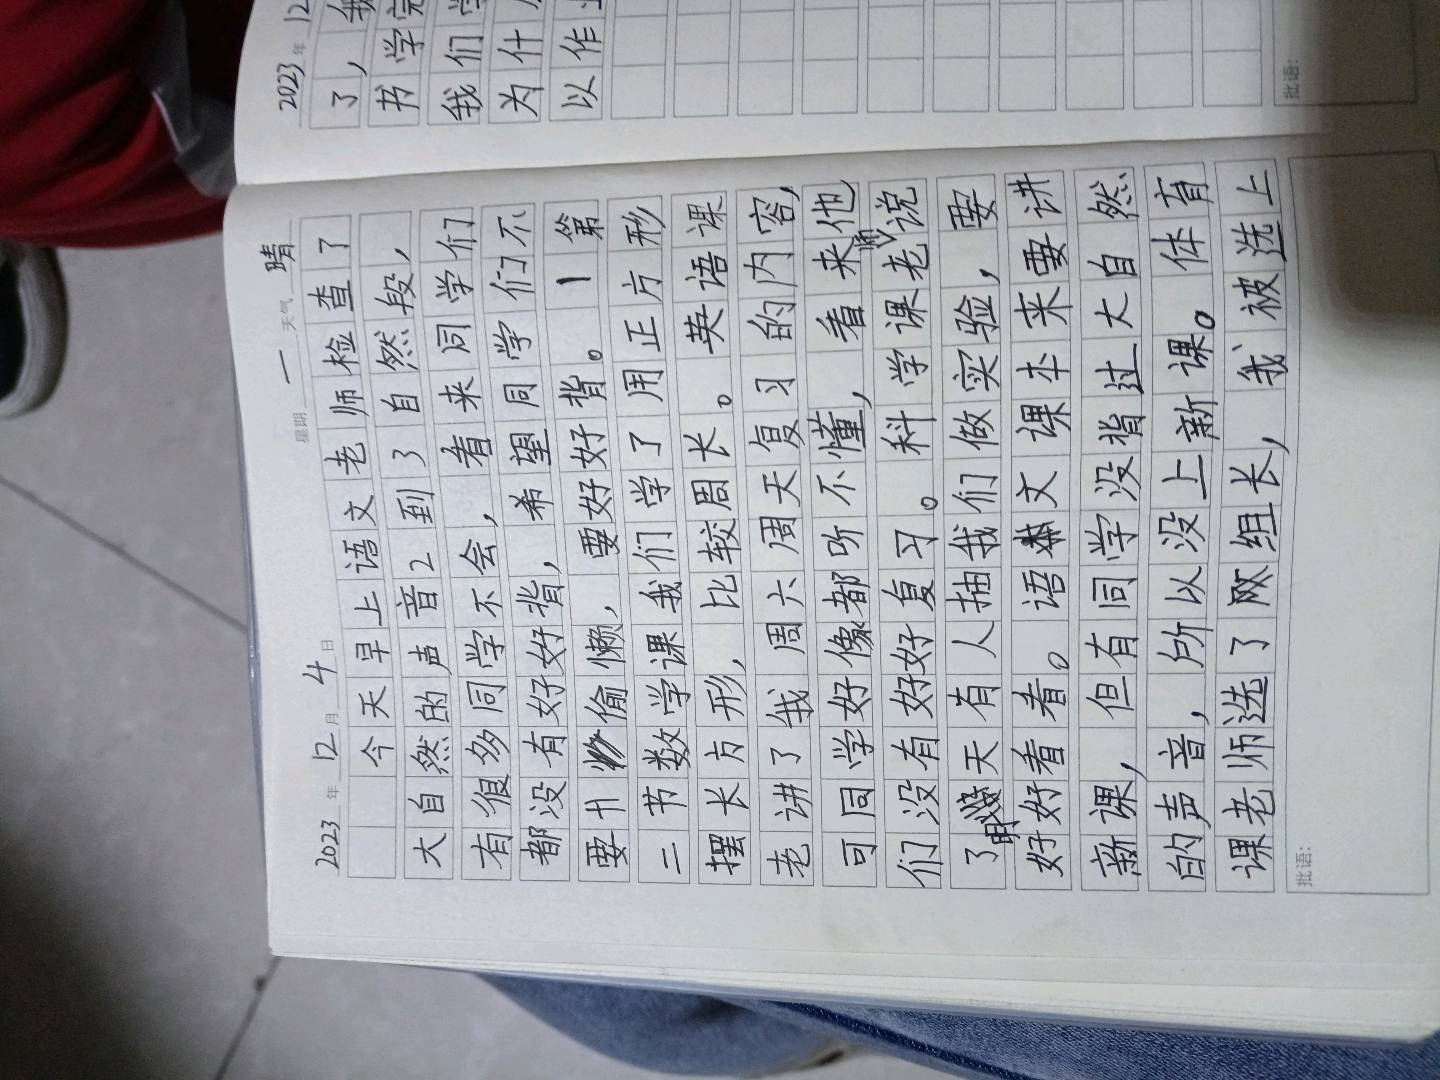 2023年12月4日 星期一 天气晴
今天早上语文老师检查了
大自然的声音2到3自然段，
有很多同学不会，看来同学们
都没有好好背，希望同学们不
要偷懒，要好好背。1第
二节数学课我们学了用正方形
摆长方形，比较周长。英语课
老讲了我周六周天复习的内容，
可同学好像都听不懂，看来他
们没有好好复习。科学课老师说
了明天有人抽我们做实验，要
好好看看。语文课本来要讲
新课，但有同学没背过大自然
的声音，所以没上新课。体育
课老师选了网组长，我被选上
批语:
2023年12
了，我
书学完
我们学
为什
以作
批语: